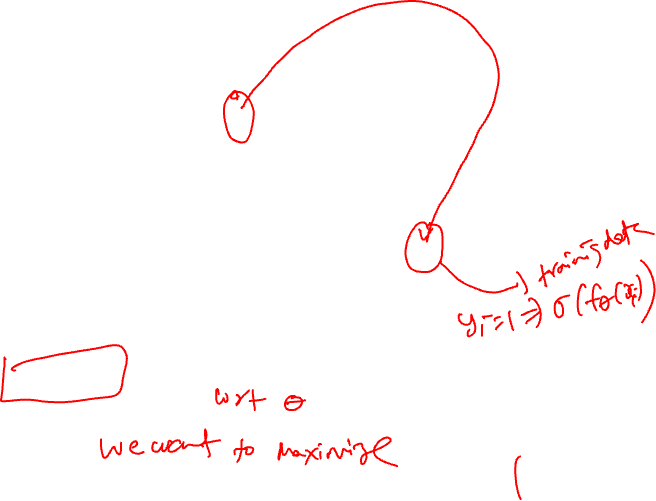 training data
yi=1 ⇒ σ(fθ(xi))
wrt θ
we want to maximize
(